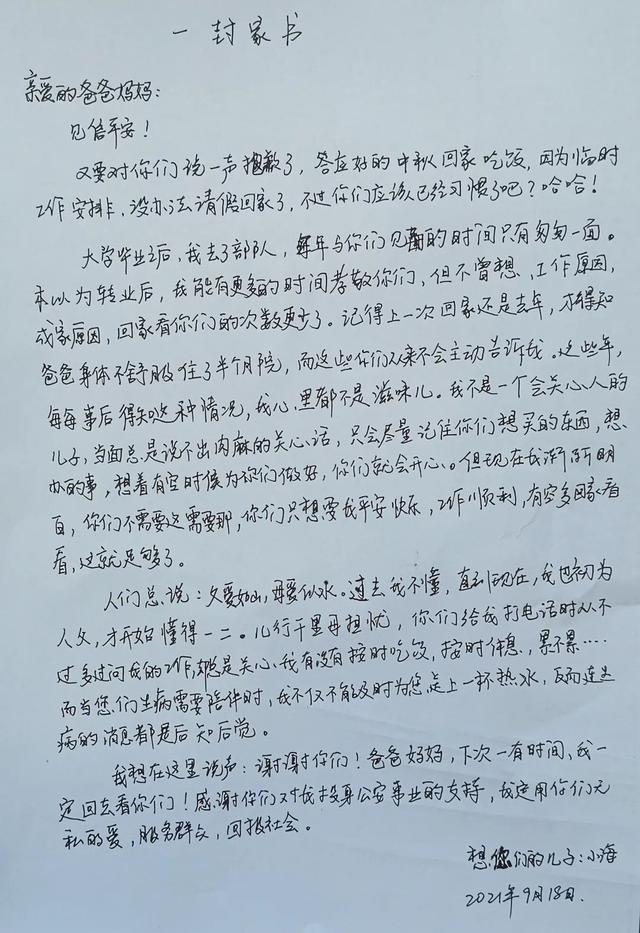 一封家书
亲爱的爸爸妈妈：
见信平安！
又要对你们说一声抱歉了，答应好的中秋回家吃饭，因为临时
工作安排，没办法请假回家了，不过你们应该已经习惯了吧？哈哈！
大学毕业后，我去了部队，每年与你们见面的时间只有匆匆一面。
本以为转业后，我能有更多的时间孝敬你们，但不曾想，工作原因，
成家原因，回家看你们的次数更少了。记得上一次回家还是去年，才得知
爸爸身体不舒服住了半个月院，而这些你们从来不会主动告诉我。这些年，
每每事后得知这种情况，我心里都不是滋味儿。我不是一个会关心人的
儿子，当面总是说不出肉麻的关心话，只会尽量记住你们想买的东西，想
办的事，想着有空时候为你们做好，你们就会开心。但现在我渐渐明
白，你们不需要这需要那，你们只想要我平安快乐，工作顺利，有空多回家看
看，这就足够了。
人们总说：父爱如山，母爱似水。过去我不懂，直到现在，我也初为
人父，才开始懂得一二。儿行千里母担忧，你们给我打电话时从不
过多过问我的工作，都是关心我有没有按时吃饭，按时休息，累不累……
而当您们生病需要陪伴时，我不仅不能及时为您端上一杯热水，反而连生
病的消息都是后知后觉。
我想在这里说声：谢谢你们！爸爸妈妈，下次一有时间，我一
定回去看你们！感谢你们对我投身公安事业的支持，我定用你们无
私的爱，服务群众，回报社会。
想你们的儿子：小海
2021年9月18日.